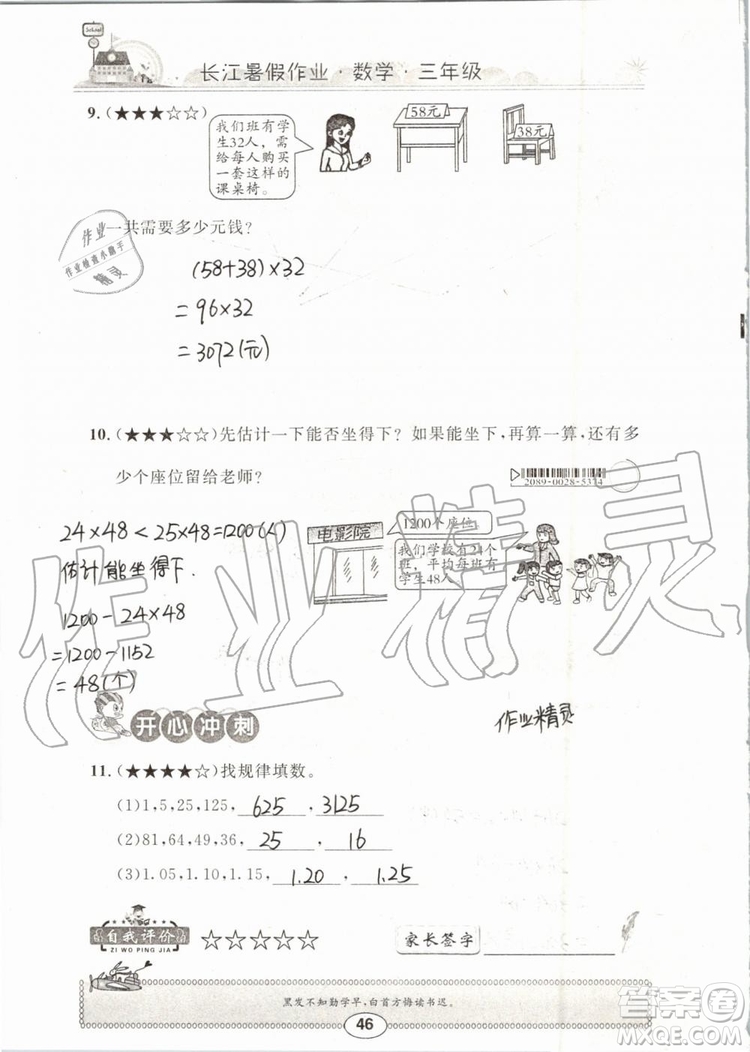 School
长江暑假作业·数学·三年级
9.(★★★☆☆)
我们班有学
生32人，需
给每人购买
一套这样的
课桌椅。
58元
38元
一共需要多少元钱？
作业
作业检查小助手
精灵
(58+38)×32
=96×32
=3072(元)
10.(★★★☆☆)先估计一下能否坐得下？如果能坐下，再算一算，还有多
少个座位留给老师？
2089-0028-5374
24×48<25×48=1200(人)
估计能坐得下.
电影院
1200个座位
我们学校有24个
班，平均每班有
学生48人
1200-24×48
=1200-1152
=48(个)
作业精灵
作业精灵
开心冲刺
11.(★★★★☆)找规律填数。
(1)1,5,25,125, 625 , 3125
(2)81,64,49,36, 25 , 16
(3)1.05,1.10,1.15, 1.20 , 1.25
自我评价
ZI WO PING JIA
☆☆☆☆☆
家长签字
黑发不知勤学早，白首方悔读书迟。
46
答案圈
MXQE.COM